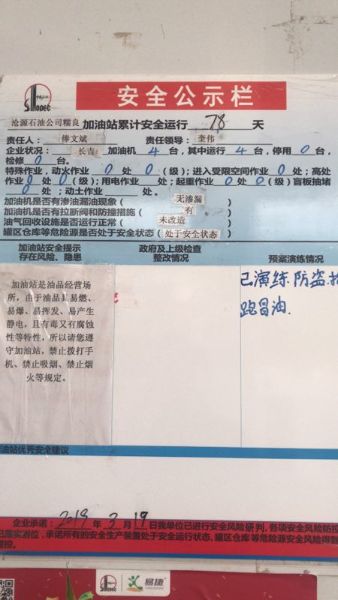 Sinopec
安全公示栏
沧源石油公司糯良加油站累计安全运行 78 天
责任人: 俸文斌 责任领导: 奎伟
企业状况: 长吉 加油机 4 台,其中运行 4 台,停用 0 台,
检修 0 台。
特殊作业,动火作业 0 处 0 (级);进入受限空间作业 0 处;高处
作业 0 处 0 (级);用电作业 0 处;起重作业 0 处 0 (级);盲板抽堵
0 处;动土作业 0 处。
加油机是否有渗油漏油现象( 无渗漏 )
加油机是否有拉断阀和防撞措施( 有 )
油气回收设施是否运行正常( 未改造 )
罐区仓库等危险源是否处于安全状态(处于安全状态)
加油站安全提示
存在风险、隐患
政府及上级检查
整改情况
预案演练情况
加油站是油品经营场
所,由于油品易燃、
易爆、易挥发、易产生
静电,且有毒又有腐蚀
性等特性,所以请您遵
守加油站,禁止拨打手
机、禁止吸烟、禁止烟
火等规定。
已演练.防盗.抢
跑冒油.
油站优秀安全建议
企业承诺: 2019 年 3 月 19 日我单位已进行安全风险研判,各项安全风险防控
已落实到位,承诺所有的安全生产装置处于安全运行状态,罐区仓库等危险源安全风险得到
管控。
易捷